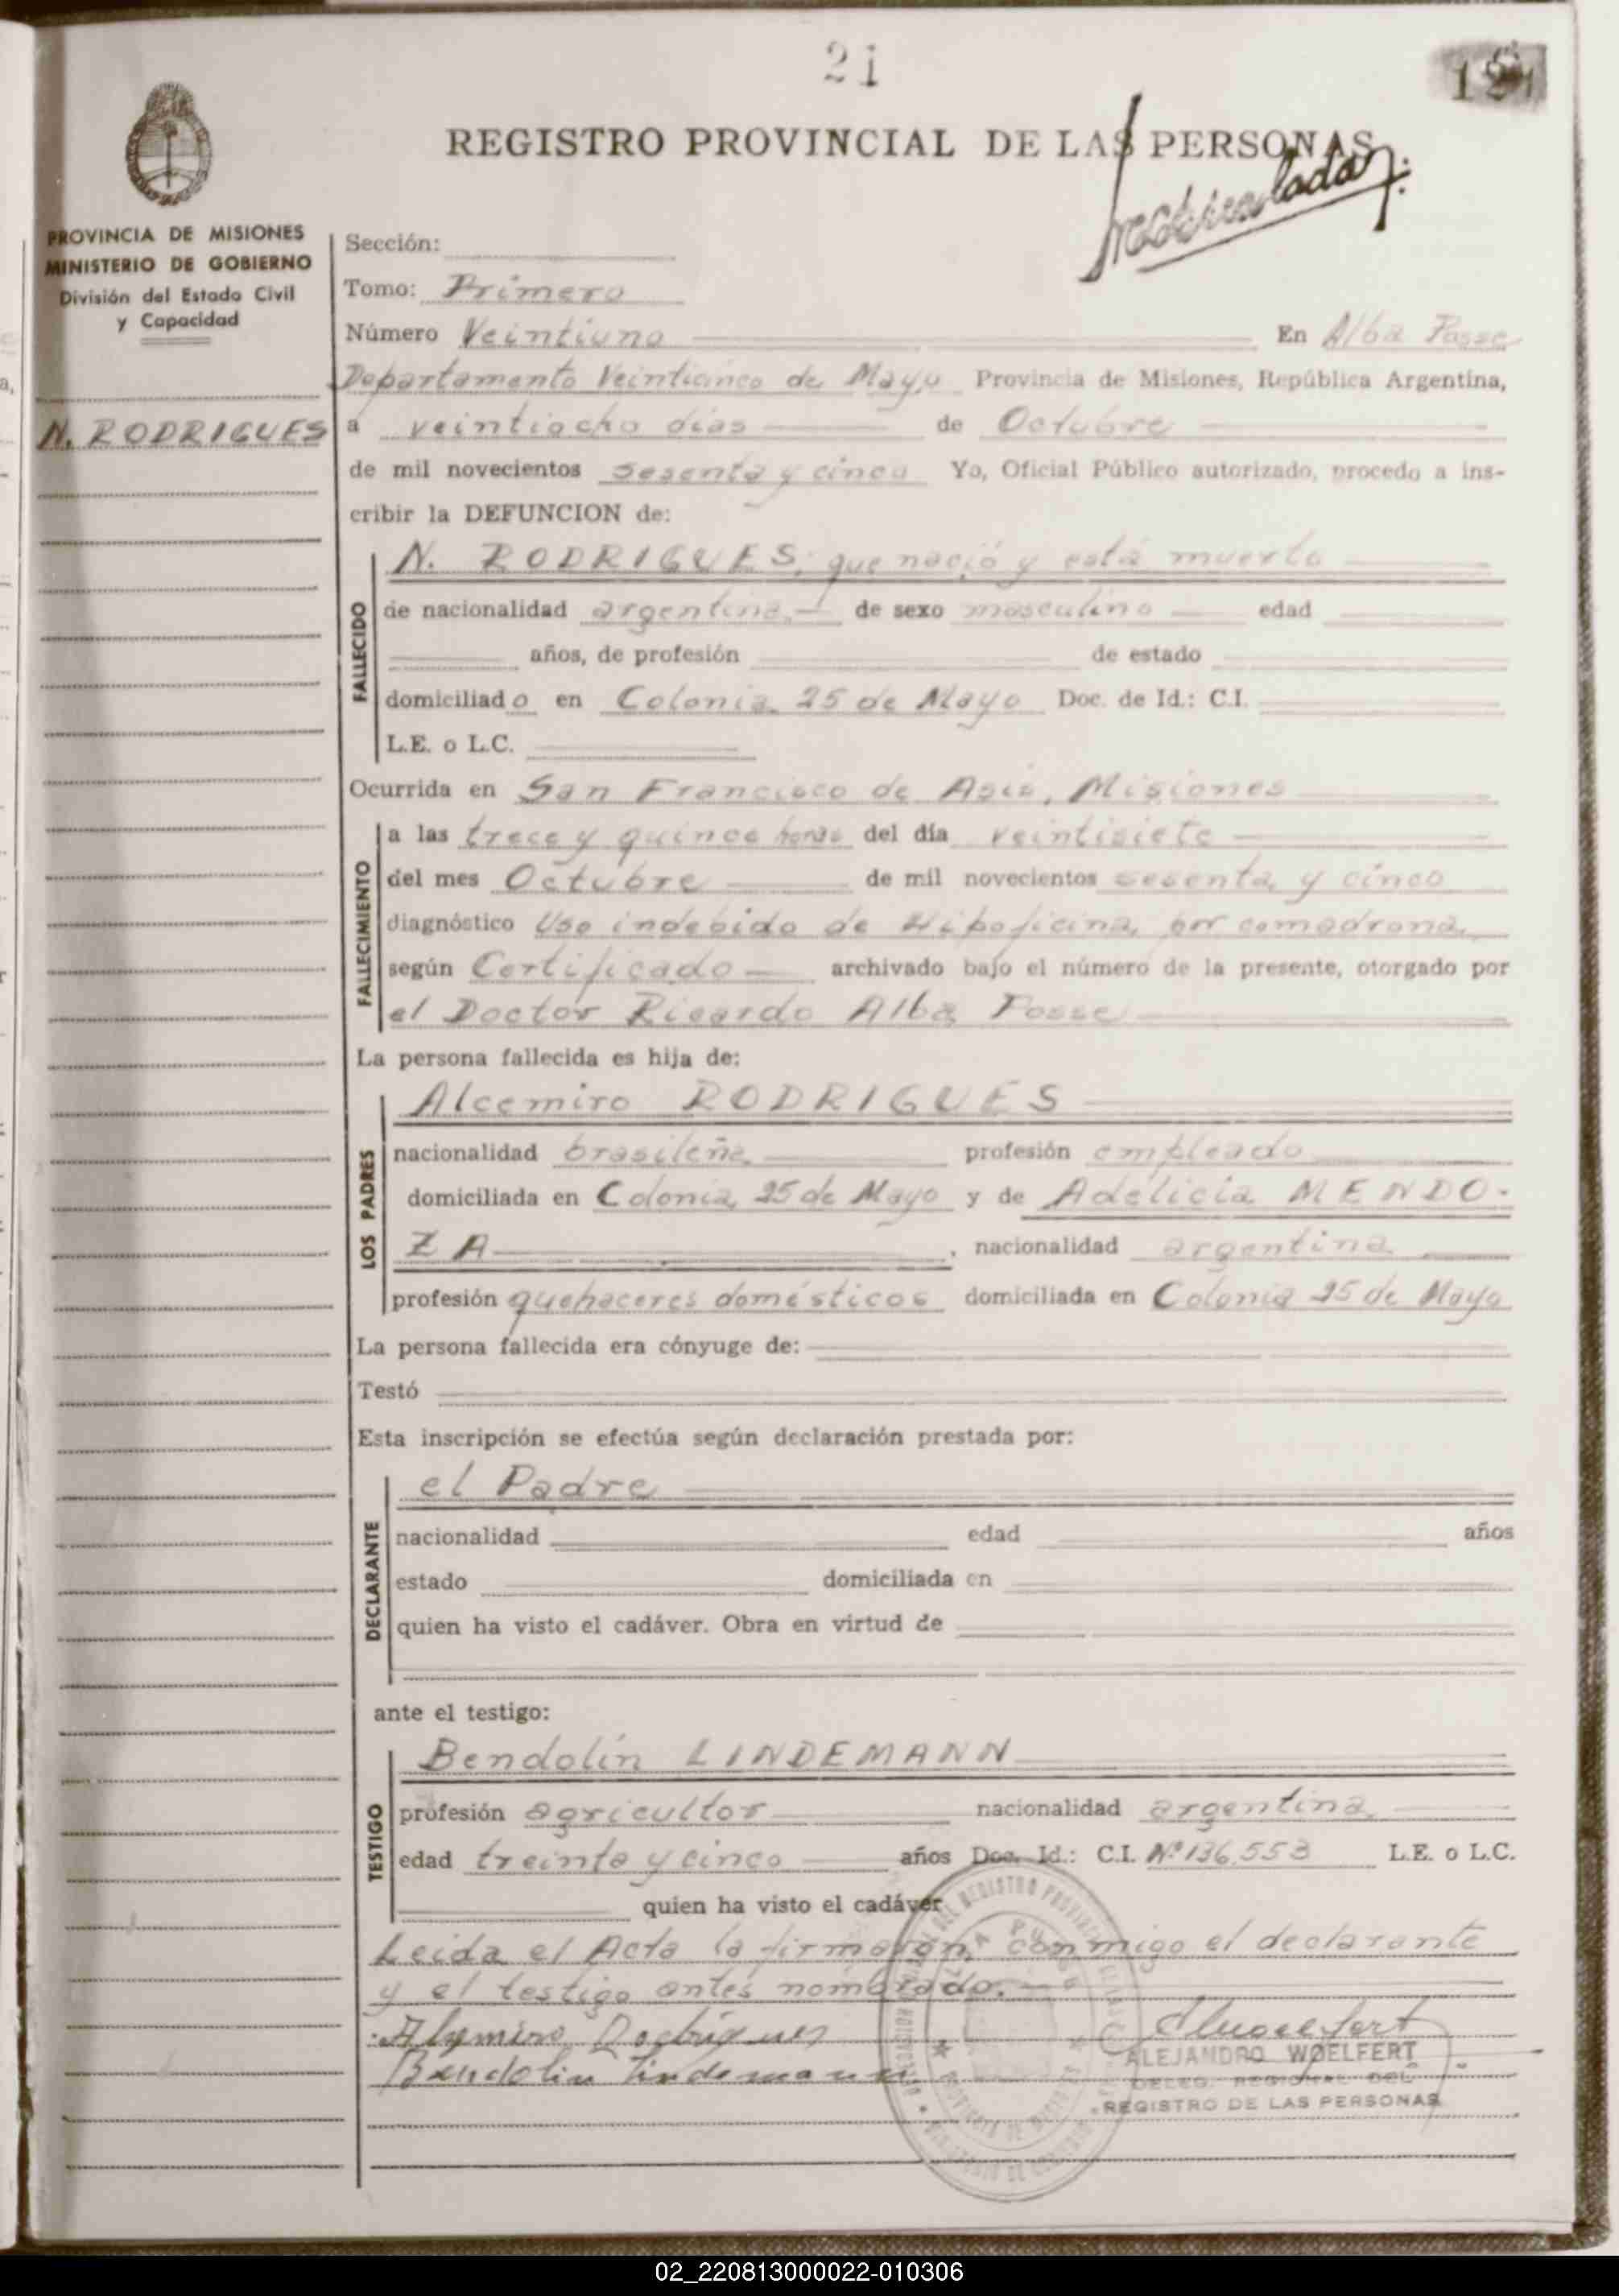 21
REGISTRO PROVINCIAL DE LAS PERSONAS
PROVINCIA DE MISIONES
MINISTERIO DE GOBIERNO
División del Estado Civil
y Capacidad
N. RODRIGUES
Sección:
Tomo: Primero
Número Veintiuno En Alba Posse
Departamento Veinticinco de Mayo Provincia de Misiones, República Argentina,
a veintiocho días de Octubre
de mil novecientos sesenta y cinco Yo, Oficial Público autorizado, procedo a ins-
cribir la DEFUNCION de:
FALLECIDO
N. RODRIGUES, que nació y está muerto
de nacionalidad argentina de sexo masculino edad
años, de profesión de estado
domiciliado en Colonia 25 de Mayo Doc. de Id.: C.I.
L.E. o L.C.
Ocurrida en San Francisco de Asis, Misiones
FALLECIMIENTO
a las trece y quince horas del día veintisiete
del mes Octubre de mil novecientos sesenta y cinco
diagnóstico Uso indebido de Hipoficina, por comadrona,
según Certificado archivado bajo el número de la presente, otorgado por
el Doctor Ricardo Alba Posse
La persona fallecida es hija de:
LOS PADRES
Alcemiro RODRIGUES
nacionalidad brasileña profesión empleado
domiciliada en Colonia 25 de Mayo y de Adelicia MENDO-
ZA , nacionalidad argentina
profesión quehaceres domésticos domiciliada en Colonia 25 de Mayo
La persona fallecida era cónyuge de:
Testó
Esta inscripción se efectúa según declaración prestada por:
DECLARANTE
el Padre
nacionalidad edad años
estado domiciliada en
quien ha visto el cadáver. Obra en virtud de
ante el testigo:
TESTIGO
Bendolin LINDEMANN
profesión agricultor nacionalidad argentina
edad treinta y cinco años Doc. Id.: C.I. Nº 136.553 L.E. o L.C.
quien ha visto el cadáver
Leida el Acta la firmaron conmigo el declarante
y el testigo antes nombrado.
Bendolin Lindemann
ALEJANDRO WOELFERT
DELEG. REGIONAL DEL
REGISTRO DE LAS PERSONAS
02_220813000022-010306